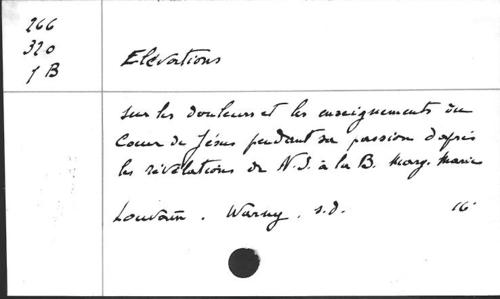 266
320
7 B
Elévations
sur les douleurs et les enseignements du
Coeur de Jésus pendant sa passion d'après
les révélations de N.S. à la B. Marg. Marie
Louvain. Warny, s.d. 16°